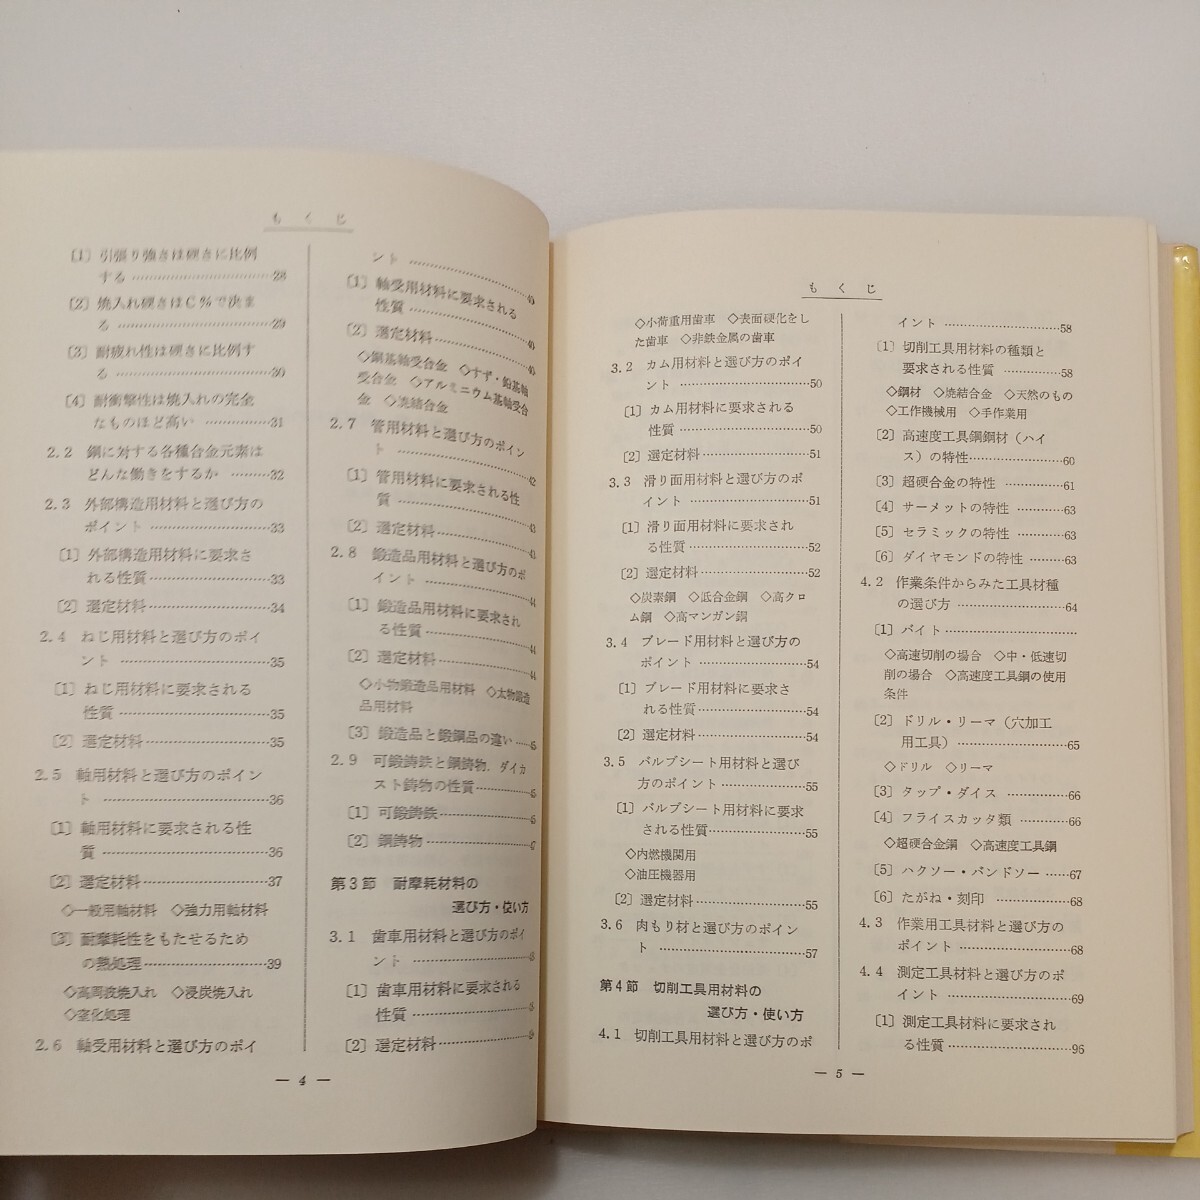 もくじ
〔1〕引張り強さは硬さに比例
する……………………………28
〔2〕焼入れ硬さはC％で決ま
る……………………………29
〔3〕耐疲れ性は硬さに比例す
る……………………………30
〔4〕耐衝撃性は焼入れの完全
なものほど高い……………31
2.2 鋼に対する各種合金元素は
どんな働きをするか………32
2.3 外部構造用材料と選び方の
ポイント……………………33
〔1〕外部構造用材料に要求さ
れる性質……………………33
〔2〕選定材料……………………34
2.4 ねじ用材料と選び方のポイ
ント…………………………35
〔1〕ねじ用材料に要求される
性質…………………………35
〔2〕選定材料……………………35
2.5 軸用材料と選び方のポイン
ト……………………………36
〔1〕軸用材料に要求される性
質……………………………36
〔2〕選定材料……………………37
◇一般用軸材料 ◇強力用軸材料
〔3〕耐摩耗性をもたせるため
の熱処理……………………39
◇高周波焼入れ ◇浸炭焼入れ
◇窒化処理
2.6 軸受用材料と選び方のポイ
ント……………………40
〔1〕軸受用材料に要求される
性質……………………40
〔2〕選定材料………………40
◇銅基軸受合金 ◇すず・鉛基軸
受合金 ◇アルミニウム基軸受合
金 ◇焼結合金
2.7 管用材料と選び方のポイン
ト………………………42
〔1〕管用材料に要求される性
質………………………43
〔2〕選定材料………………43
2.8 鍛造品用材料と選び方のポ
イント…………………44
〔1〕鍛造品用材料に要求され
る性質…………………44
〔2〕選定材料………………44
◇小物鍛造品用材料 ◇太物鍛造
品用材料
〔3〕鍛造品と鍛鋼品の違い……45
2.9 可鍛鋳鉄と鋼鋳物．ダイカ
スト鋳物の性質…………45
〔1〕可鍛鋳鉄………………
〔2〕鋼鋳物…………………47
第3節 耐摩耗材料の
選び方・使い方
3.1 歯車用材料と選び方のポイ
ント……………………
〔1〕歯車用材料に要求される
性質……………………
〔2〕選定材料………………
― 4 ―
もくじ
◇小荷重用歯車 ◇表面硬化をし
た歯車 ◇非鉄金属の歯車
3.2 カム用材料と選び方のポイ
ント……………………50
〔1〕カム用材料に要求される
性質……………………50
〔2〕選定材料………………51
3.3 滑り面用材料と選び方のポ
イント…………………51
〔1〕滑り面用材料に要求され
る性質…………………52
〔2〕選定材料………………52
◇炭素鋼 ◇低合金鋼 ◇高クロ
ム鋼 ◇高マンガン鋼
3.4 ブレード用材料と選び方の
ポイント………………54
〔1〕ブレード用材料に要求さ
れる性質………………54
〔2〕選定材料………………54
3.5 バルブシート用材料と選び
方のポイント……………55
〔1〕バルブシート用材料に要求
される性質………………55
◇内燃機関用
◇油圧機器用
〔2〕選定材料………………55
3.6 肉もり材と選び方のポイン
ト………………………57
第4節 切削工具用材料の
選び方・使い方
4.1 切削工具用材料と選び方のポ
イント…………………58
〔1〕切削工具用材料の種類と
要求される性質…………58
◇鋼材 ◇焼結合金 ◇天然のもの
◇工作機械用 ◇手作業用
〔2〕高速度工具鋼鋼材（ハイ
ス）の特性………………60
〔3〕超硬合金の特性…………61
〔4〕サーメットの特性………63
〔5〕セラミックの特性………63
〔6〕ダイヤモンドの特性……63
4.2 作業条件からみた工具材種
の選び方………………64
〔1〕バイト…………………
◇高速切削の場合 ◇中・低速切
削の場合 ◇高速度工具鋼の使用
条件
〔2〕ドリル・リーマ（穴加工
用工具）………………65
◇ドリル ◇リーマ
〔3〕タップ・ダイス…………66
〔4〕フライスカッタ類………66
◇超硬合金鋼 ◇高速度工具鋼
〔5〕ハクソー・バンドソー……67
〔6〕たがね・刻印……………68
4.3 作業用工具材料と選び方の
ポイント………………68
4.4 測定工具材料と選び方のポ
イント…………………69
〔1〕測定工具材料に要求され
る性質…………………96
― 5 ―